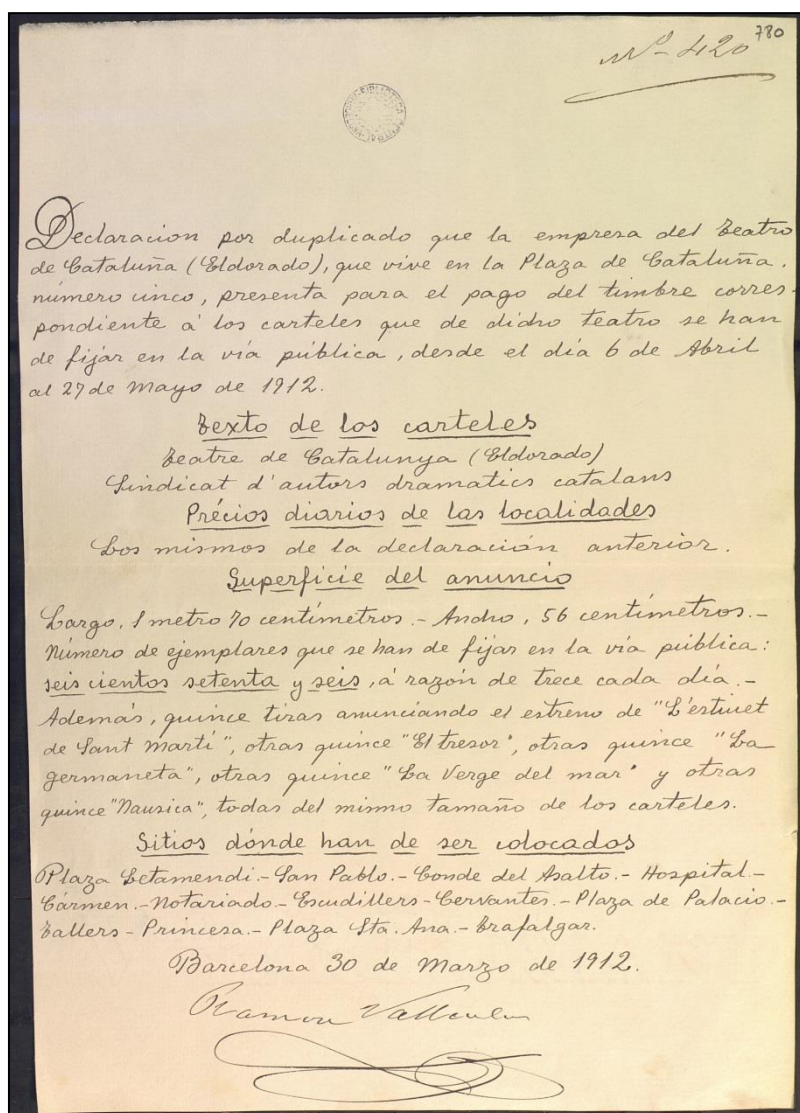 780
Nº-420
BIBLIOTECA
Declaracion por duplicado que la empresa del Teatro
de Cataluña (Eldorado), que vive en la Plaza de Cataluña,
número cinco, presenta para el pago del timbre corres-
pondiente á los carteles que de dicho teatro se han
de fijár en la vía pública, desde el día 6 de Abril
al 27 de Mayo de 1912.
Texto de los carteles
Teatre de Catalunya (Eldorado)
Sindicat d'autors dramatics catalans
Précios diarios de las localidades
Los mismos de la declaración anterior.
Superficie del anuncio
Largo, 1 metro 70 centímetros.- Ancho, 56 centímetros.-
Número de ejemplares que se han de fijar en la vía pública:
seis cientos setenta y seis, á razón de trece cada día.-
Además, quince tiras anunciando el estreno de "L'estiuet
de Sant Martí", otras quince "El tresor", otras quince "La
germaneta", otras quince "La Verge del mar" y otras
quince "Nausica", todas del mismo tamaño de los carteles.
Sitios dónde han de ser colocados
Plaza Letamendi.- San Pablo.- Conde del Asalto.- Hospital.-
Cármen.- Notariado.- Escudillers- Cervantes.- Plaza de Palacio.-
Tallers- Princesa.- Plaza Sta. Ana.- Trafalgar.
Barcelona 30 de Marzo de 1912.
Ramon